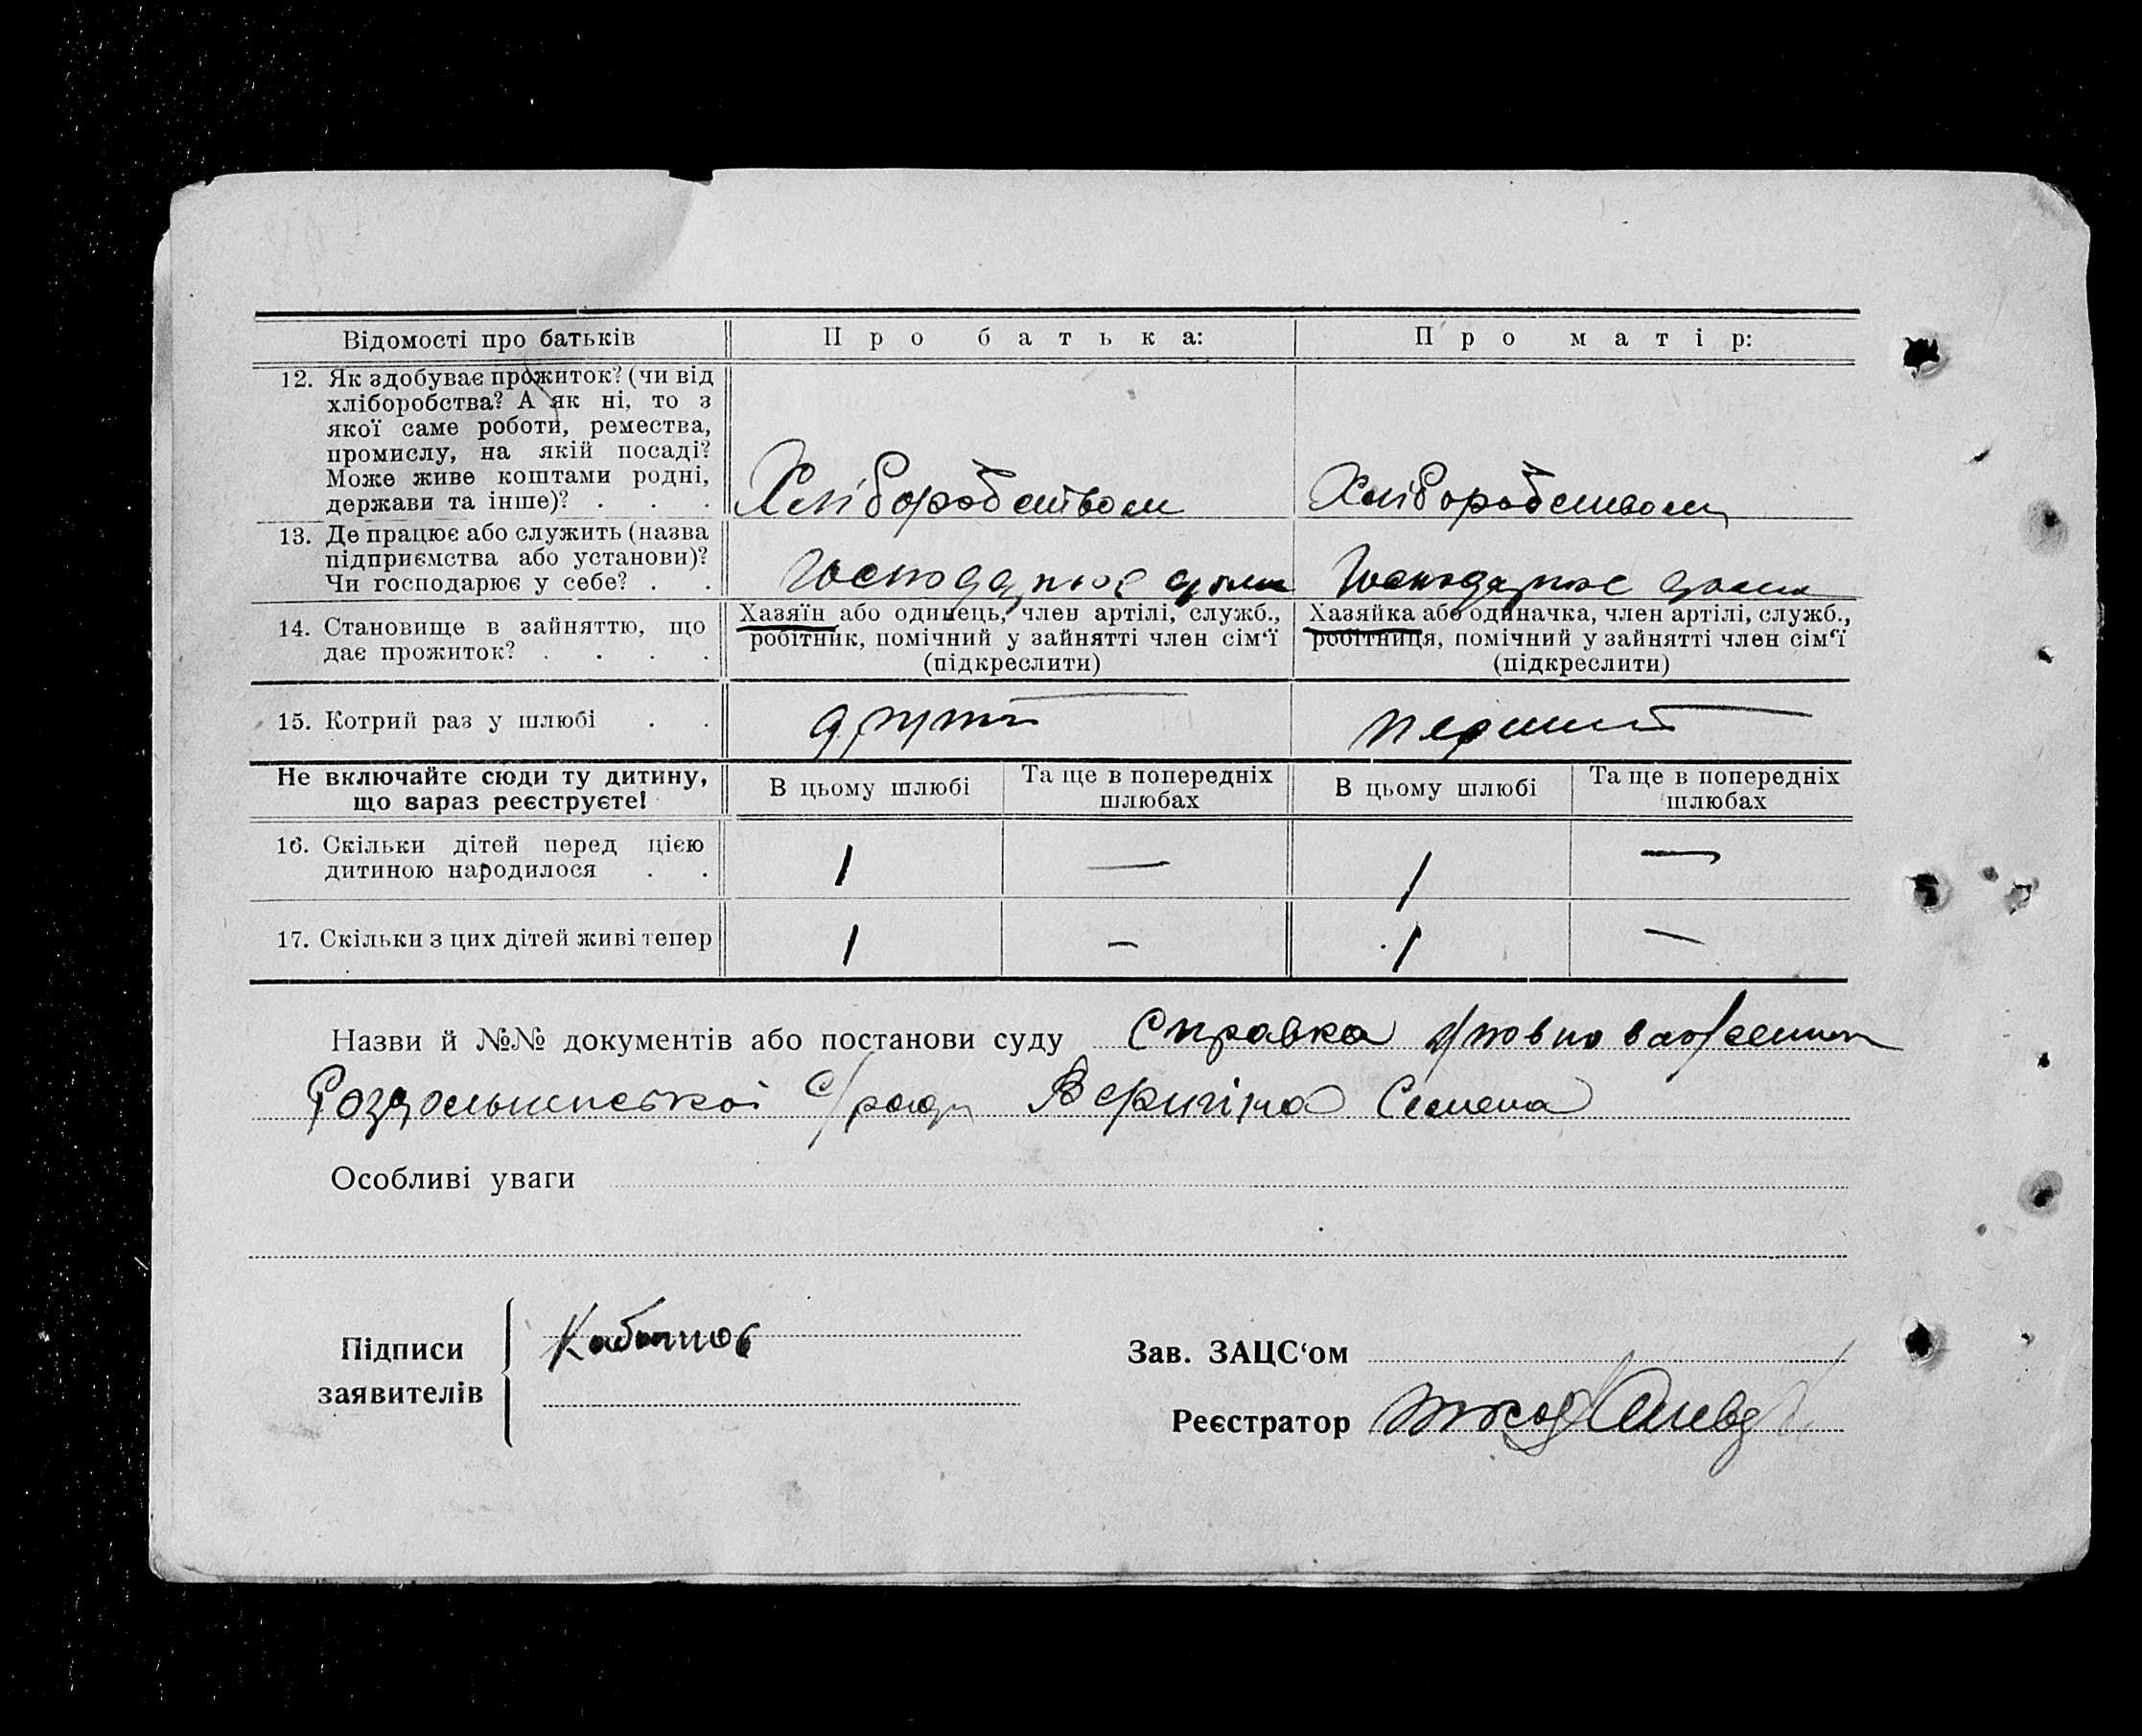 Відомості про батьків
Про батька:
Про матір:
12. Як здобуває прожиток? (чи від
хліборобства? А як ні, то з
якої саме роботи, ремества,
промислу, на якій посаді?
Може живе коштами родні,
держави та інше)? . . .
Хліборобством
Хліборобством
13. Де працює або служить (назва
підприємства або установи)?
Чи господарює у себе? . .
Господарює дома
Господарює дома
14. Становище в зайняттю, що
дає прожиток? . . . .
Хазяїн або одинець, член артілі, служб.,
робітник, помічний у зайнятті член сім‘ї
(підкреслити)
Хазяйка або одиначка, член артілі, служб.,
робітниця, помічний у зайнятті член сім‘ї
(підкреслити)
15. Котрий раз у шлюбі . .
другий
перший
Не включайте сюди ту дитину,
що зараз реєструєте!
В цьому шлюбі
Та ще в попередніх
шлюбах
В цьому шлюбі
Та ще в попередніх
шлюбах
16. Скільки дітей перед цією
дитиною народилося . .
1
—
1
—
17. Скільки з цих дітей живі тепер
1
—
1
—
Назви й №№ документів або постанови суду Справка
с/ради Веригіна Семена
Особливі уваги
Підписи
заявителів
Зав. ЗАЦС‘ом
Реєстратор